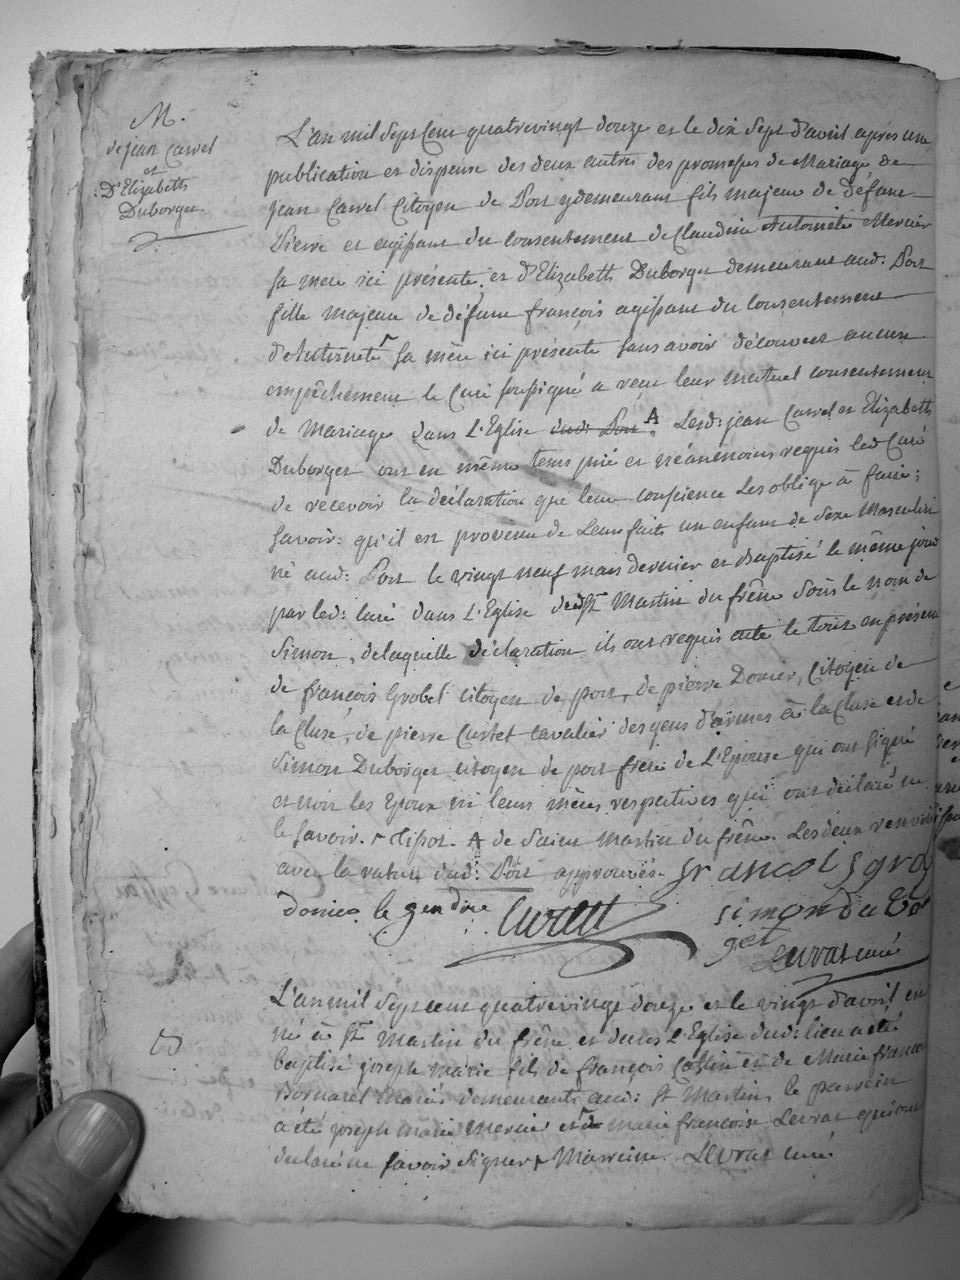 M.
de jean Carrel
et
D'Elizabeth
Duborget
L'an mil sept cent quatrevingt douze et le dix sept d'avril apres une
publication et dispense des deux autres des promesses de Mariage de
jean Carrel Citoyen de Port y demeurant fils majeur de défunt
Pierre et agissant du consentement de Claudine Antoinette Mercier
sa mere ici présente, et d'Elizabeth Duborget demeurant aud: Port
fille majeure de défunt françois agissant du consentement
d'Antoinette + sa mère ici présente sans avoir découvert aucun
empêchement le Curé soussigné a reçu leur mutuel consentement
de Mariage dans L'Eglise dud: Port A. Lesd: jean Carrel et Elizabeth
Duborget ont en même tems prié et néanmoins requis led Curé
de recevoir la déclaration que leur conscience les oblige à faire;
savoir: qu'il est provenu de leurs faits un enfant de sexe Masculin
né aud: Port le vingt neuf mars dernier et baptisé le même jour
par led: Curé dans L'Eglise de St Martin du frêne sous le nom de
Simon, de laquelle déclaration ils ont requis acte le tout en présence
de françois Grobel citoyen de port, de pierre Donier, Citoyen de
la Cluse, de pierre Curtet cavalier des gens d'armes à la Cluse et de
Simon Duborget citoyen de port frère de L'Epouse qui ont signé
et non les Epoux ni leurs mères respectives qui ont déclaré ne
le savoir. + A de Saint Martin du frêne. Les deux renvois
avec la rature dud: Port approuvés. francois gro
donier le gendre Curtet simon du bor
get
Levrat curé
L'an mil sept cent quatrevingt douze et le vingt d'avril est
né à St Martin du frêne et dans L'Eglise dud: lieu a été
baptisé joseph marie fils de françois et de Marie françoise
mariés demeurants aud: St Martin, le parrein
a été joseph marie Mercier et la + marie françoise Levrat qui ont
déclaré ne savoir signer + Marreine. Levrat curé